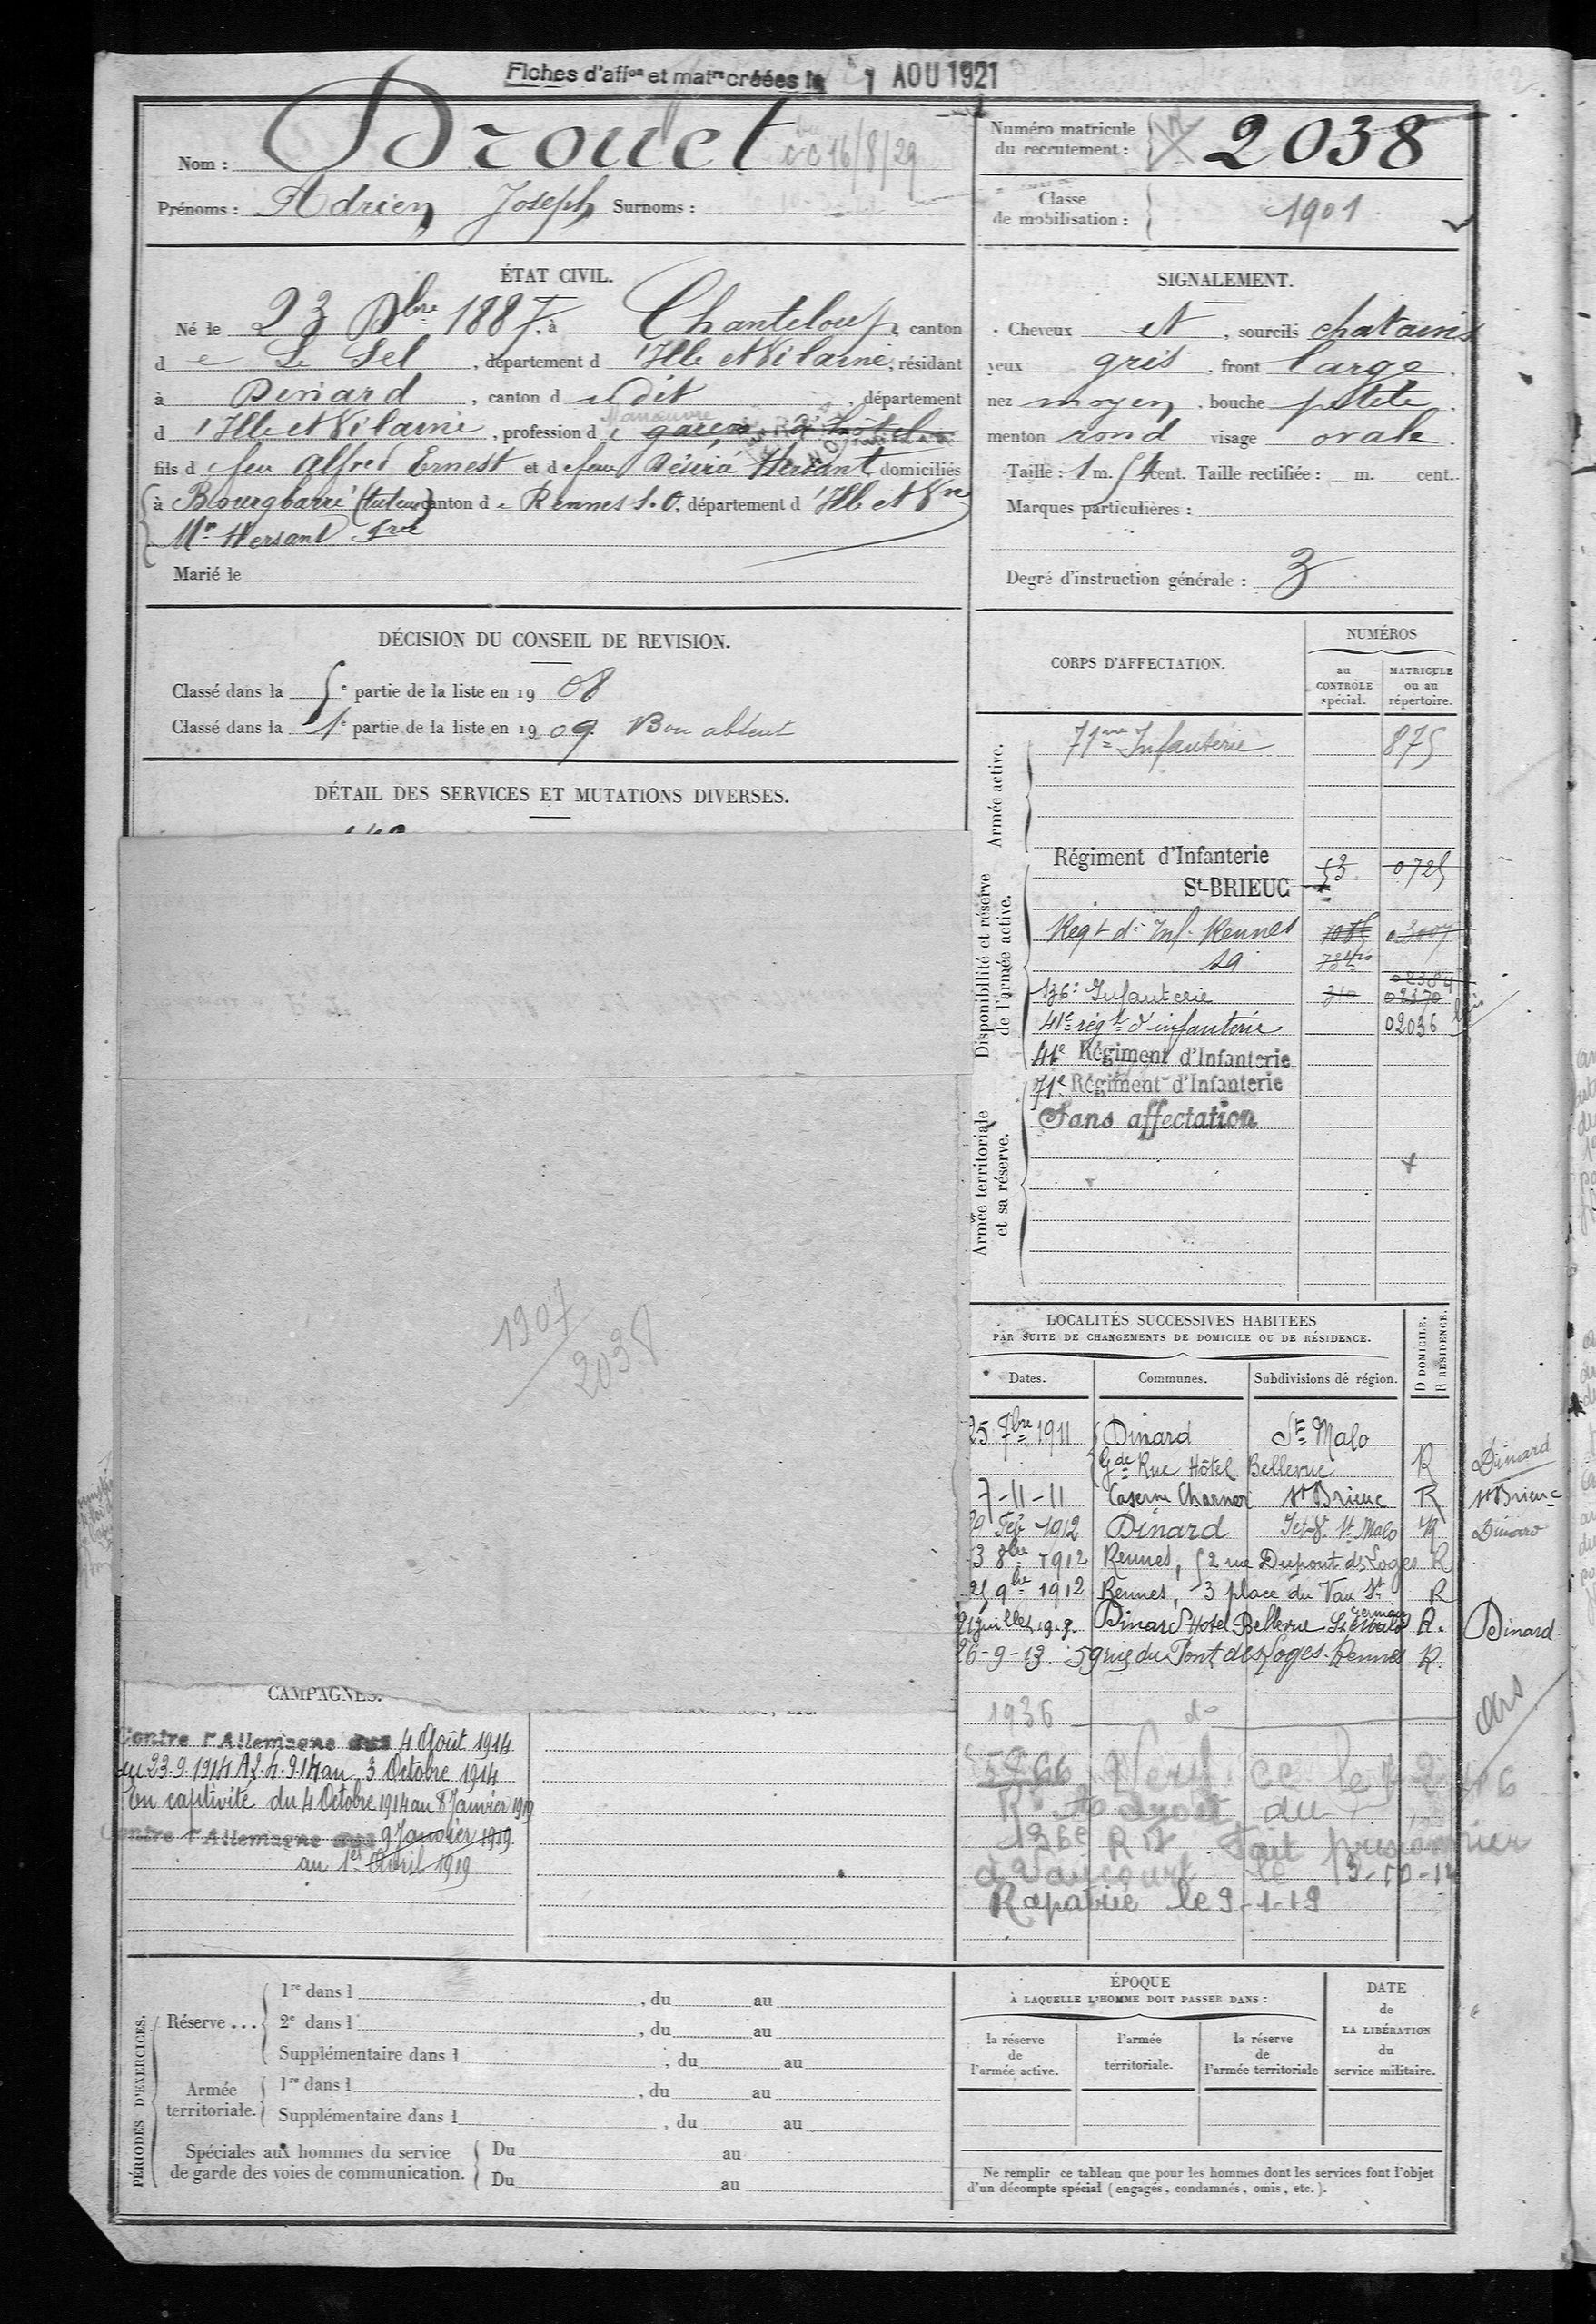 Fiches d'affon et matre créées le 1 AOU 1921
Nom : Drouet
CC 16/8/29
Prénoms : Adrien Joseph Surnoms :
Numéro matricule du recrutement : 2038
Classe de mobilisation : 1901
ÉTAT CIVIL.
Né le 23 Xbre 1887, à Chanteloup, canton
de Le Sel, département d'Ille et Vilaine, résidant
à Dinard, canton d dit, département
d'Ille et Vilaine, profession de garçon d'hôtel
Manœuvre
fils d feu Alfred Ernest et de feue Désirée Hersant, domiciliés
à Bourgbarré (tuteur) canton de Rennes S.O, département d'Ille et Vne
Mr Hersant
Marié le
SIGNALEMENT.
Cheveux et, sourcils chatains
yeux gris, front large
nez moyen, bouche petite
menton rond visage ovale
Taille : 1 m. 54 cent. Taille rectifiée : m. cent.
Marques particulières :
Degré d'instruction générale : 3
DÉCISION DU CONSEIL DE REVISION.
Classé dans la 5e partie de la liste en 1908
Classé dans la 1e partie de la liste en 1909 Bon absent
DÉTAIL DES SERVICES ET MUTATIONS DIVERSES.
1907
2038
CORPS D'AFFECTATION.
NUMÉROS
au CONTRÔLE spécial.
MATRICULE ou au répertoire.
Armée active.
71me Infanterie 875
Disponibilité et réserve de l'armée active.
Régiment d'Infanterie
St-BRIEUC 53 0725
Regt d'Inf. Rennes 1085 03007
02384
136e Infanterie 310 02370
41e régt d'infanterie 02036
41e Régiment d'Infanterie
Armée territoriale et sa réserve.
71e Régiment d'Infanterie
Sans affectation
LOCALITÉS SUCCESSIVES HABITÉES
PAR SUITE DE CHANGEMENTS DE DOMICILE OU DE RÉSIDENCE.
Dates. Communes. Subdivisions de région. D DOMICILE. R RÉSIDENCE.
25 7bre 1911 Dinard St Malo
Gde Rue Hôtel Bellevue R Dinard
7-11-11 Caserne Charner St Brieuc R St Brieuc
Feb 1912 Dinard St Malo R Dinard
3 8bre 1912 Rennes, 52 rue Dupont des Loges R
25 9bre 1912 Rennes, 3 place du Vau St Germain R
Dinard Hotel Bellevue St Malo R. Dinard
26-9-13 59 rue du Pont des Loges Rennes R.
1936 do
CAMPAGNES.
Contre l'Allemagne du 4 Août 1914
au 23.9.1914 24.9.14 au 3 Octobre 1914
En captivité du 4 Octobre 1914 au 8 Janvier 1919
Contre l'Allemagne du 9 Janvier 1919
au 1er Avril 1919
136e R I Fait prisonnier
le 3-10-14
Rapatrié le 9-1-19
PÉRIODES D'EXERCICES.
Réserve ... 1re dans l , du au
2e dans l , du au
Supplémentaire dans l , du au
Armée territoriale. 1re dans l , du au
Supplémentaire dans l , du au
Spéciales aux hommes du service de garde des voies de communication. Du au
Du au
ÉPOQUE
À LAQUELLE L'HOMME DOIT PASSER DANS :
la réserve de l'armée active.
l'armée territoriale.
la réserve de l'armée territoriale
DATE de LA LIBÉRATION du service militaire.
Ne remplir ce tableau que pour les hommes dont les services font l'objet
d'un décompte spécial (engagés, condamnés, omis, etc.).